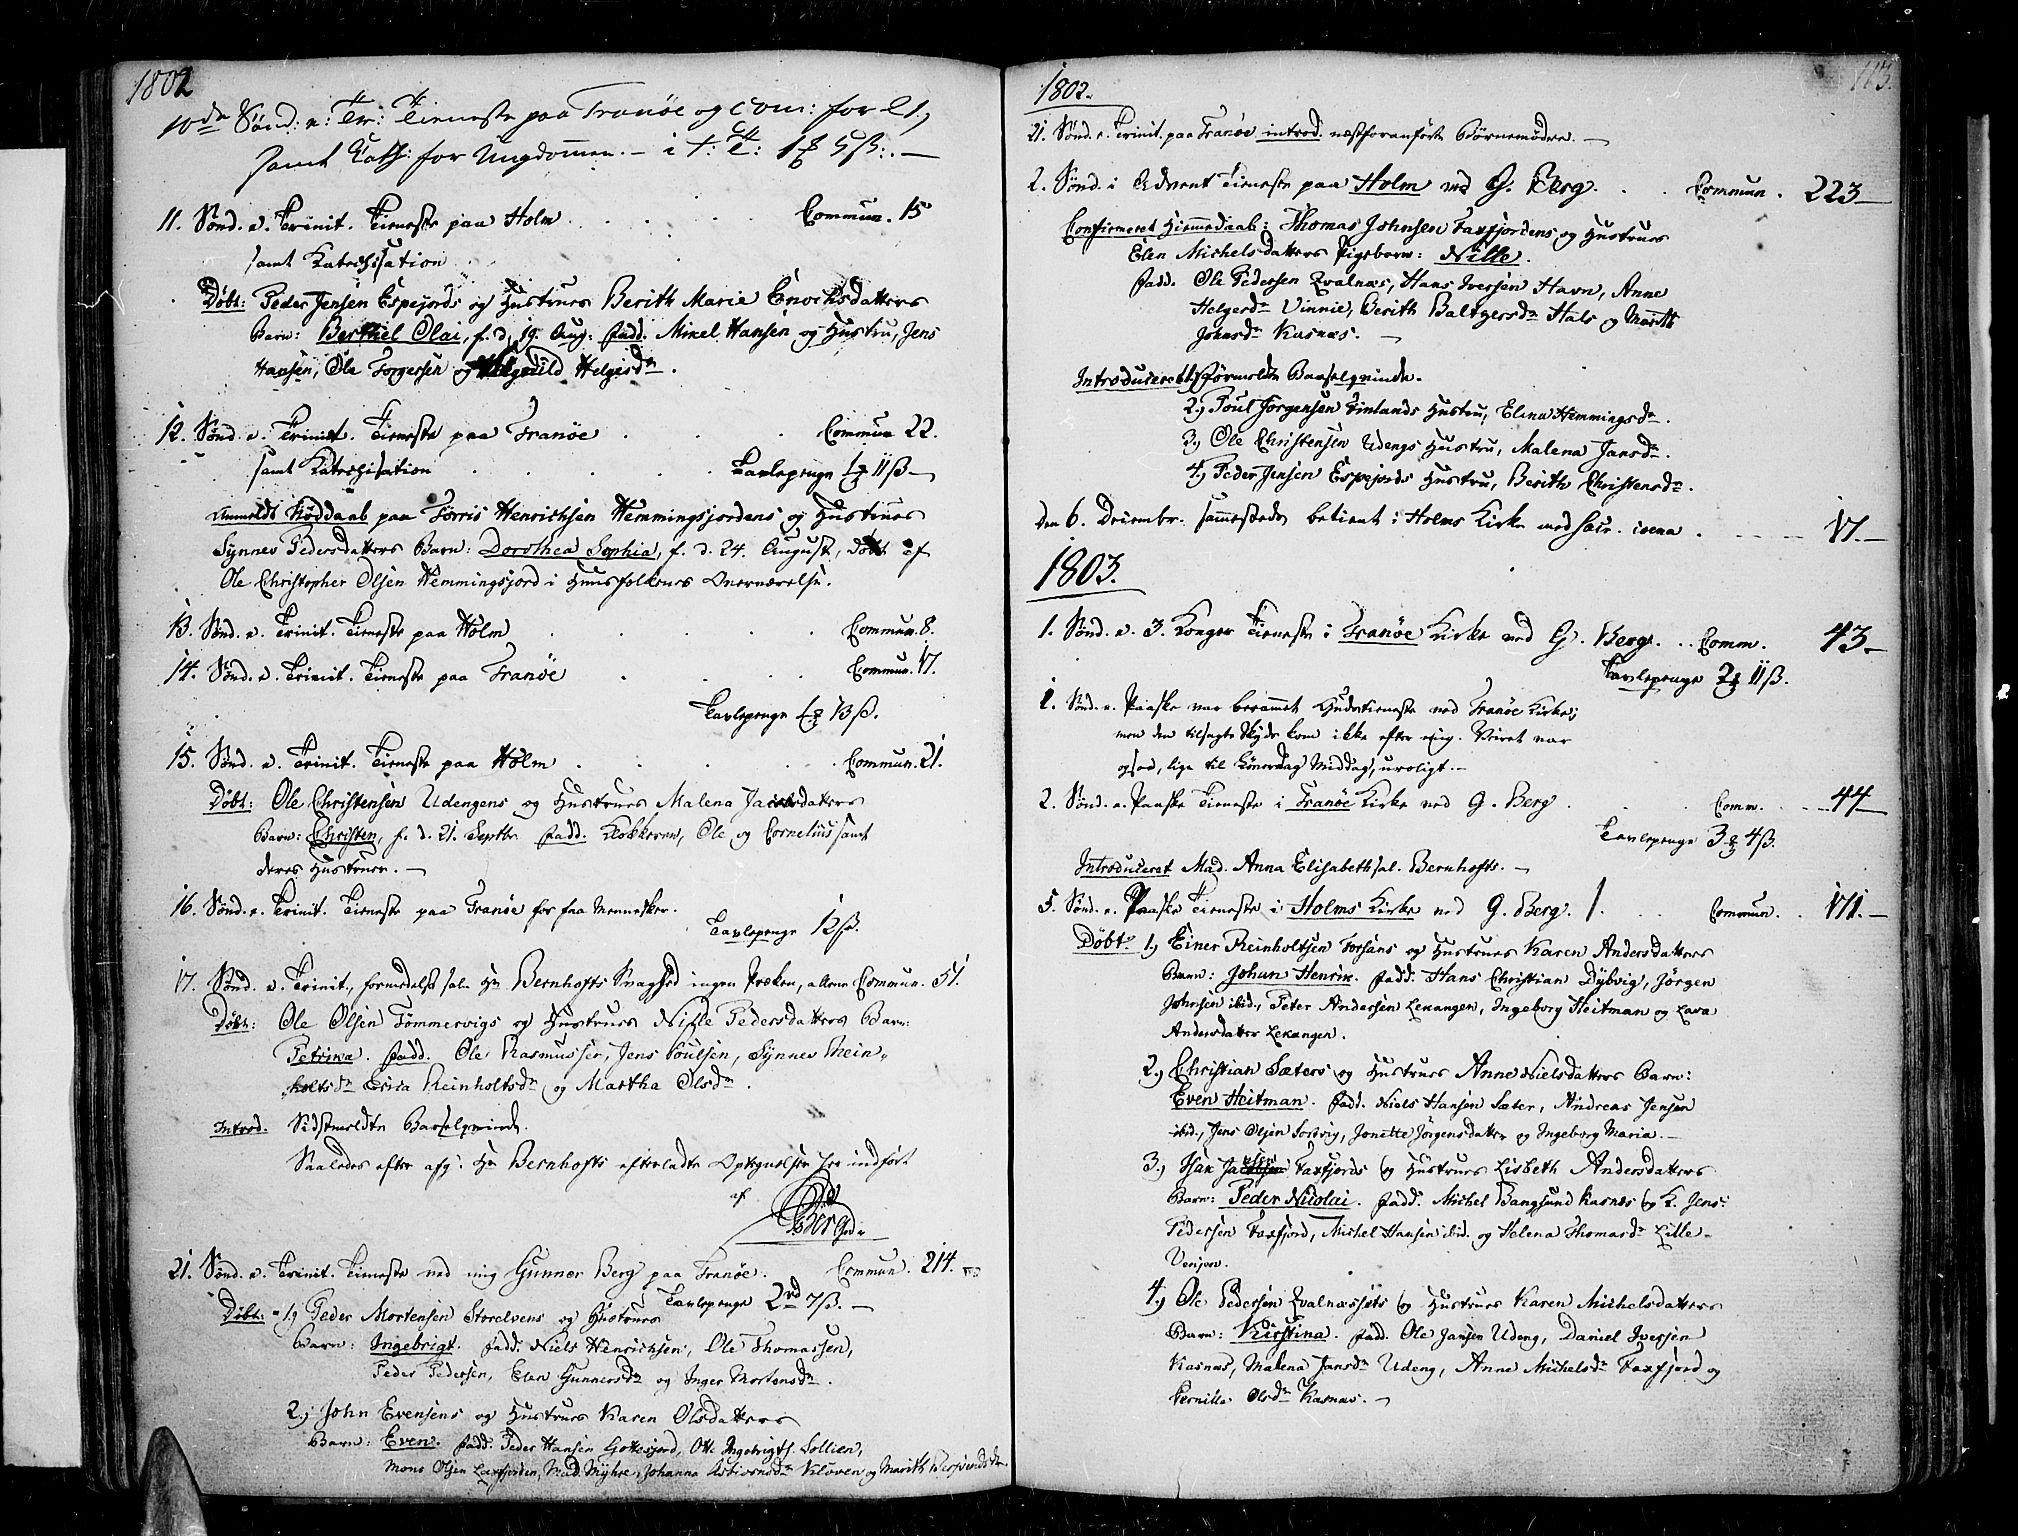 1802
10da Sønd: e: Tr: Tieneste paa Tranøe og com: for 21,
samt Kath: for Ungdommen. – i T: T: 1 # 4 ß: –
11. Sønd. e. Trinit. Tieneste paa Holm . . . . Commun. 15
samt Katechisation
Døbt: Peder Jensen Espejords og Hustrues Berith Marie Enochsdatters
Barn: Berthel Olai, f. d. 19. Aug: fadd. Mikel Hansen og Hustru, Jens
Hansen, Ole Torgersen og Helgesdr.
12. Sønd. e. Trinit. Tieneste paa Tranøe . . . Commun 22.
samt Katechisation . . . . Tavlepenge 1 # 11 ß –
Anmeldt Nøddaab paa Torris Henrichsen Hemmingsjordens og Hustrues
Synnev Pedersdatters Barn: Dorothea Sophia, f. d. 24. August, døbt af
Ole Christopher Olsen Hemmingsjord i Huusfolkenes Overværelse.
13. Sønd. e. Trinit. Tieneste paa Holm . . . . Commun. 8.
14. Sønd. e. Trinit. Tieneste paa Tranøe . . . Commun. 17.
Tavlepenge 1 # 13 ß.
15. Sønd. e. Trinit. Tieneste paa Holm . . . . Commun. 21.
Døbt: Ole Christensen Udengens og Hustrues Malena datters
Barn: Christen, f. d. 21. Septbr. fadd. Klokkeren, Ole og Cornelius samt
deres Hustruer. –
16. Sønd. e. Trinit. Tieneste paa Tranøe for faa Mennesker.
Tavlepenge 12 ß.
17. Sønd. e. Trinit., formedelst sal. Hr Bernhofts Svaghed ingen Præken, allene Commun. 51.
Døbt: Ole Olsen Tømmervigs og Hustrues Nille Pedersdatters Barn:
Petrika. fadd. Ole Rasmussen, Jens Poulsen, Synnev Rein-
holtsdr Reinholtsdr og Martha Olsdr.
Introd. Sidstmeldte Barselqvinde.
Saaledes efter afg. Hr Bernhofts efterladte Optegnelser her indført
af
GBerg
21. Sønd. e. Trinit. Tieneste ved mig Gunner Berg paa Tranøe. Commun. 214.
Tavlepenge 2 rd 7 ß. –
Døbt: 1.) Peder Mortensen Storelvens og Hustrues
Barn: Ingebrigt. fadd: Niels Henrichsen, Ole Thomassen,
Peder Pedersen, Elen Gunnersdr og Inger Mortensdr.
2.) John Evensens og Hustrues Karen Olsdatters
Barn: Even. fadd. Peder Hansen Gottesjord, Otte Ingebrigts. Sollien,
Mons Olsen Laxfjorden, Mad. Myhre, Johanna Kløven og Marith
113.
1802.
21. Sønd. e. Trinit. paa Tranøe introd. næstforanførte Børnemødre. –
2. Sønd. i Advent Tieneste paa Holm ved G. Berg. . . Commun. 223 –
Confirmeret Hiemmedaab: Thomas Johnsen Faxfjordens og Hustrues
Elen Michelsdatters Pigebarn: Nille.
fadd. Ole Pedersen Evalnæs, Hans Iversen Havn, Anne
Helgersdr Vinnie, Berith Baltzersdr Hals og Marith
Johnsdr Kasnæs. –
Introduceret 1.) Førmeldte Barselqvinde.
2.) Poul Jørgensen Finlands Hustru, Elena Hemmingsdr.
3.) Ole Christensen Udengs Hustru, Malena Jansdr.
4.) Peder Jensen Espejords Hustru, Berith Christensdr.
den 6. Decembr. sammesteds betient i Holms Kirke med sacr. coena . . . . 17. –
1803.
1. Sønd. e. 3. Konger Tieneste i Tranøe Kirke ved G. Berg. . . Comm. 43. –
Tavlepenge 2 # 11 ß.
1. Sønd. e. Paaske var berammet Gudstieneste ved Tranøe Kirke;
men den tilsagte Skyds kom ikke efter mig. Veiret var
ogsaa, lige til Løverdag Middag, uroligt. –
2. Sønd. e. Paaske Tieneste i Tranøe Kirke ved G. Berg . . Comm. . . . 44 –
Tavlepenge 3 # 4 ß.
Introduceret Mad. Anna Elisabeth sal. Bernhofts. –
5. Sønd. e. Paaske Tieneste i Holms Kirke ved G. Berg. . . Commun. . . 171. –
Døbt. 1.) Einer Reinholtsen Forsaas og Hustrues Karen Andersdatters
Barn: Johan Henrik. fadd: Hans Christian Dybvig, Jørgen
Johnsen ibid., Peter Andersen Lekangen, Ingeborg Heitman og Lava
Andersdatter Lekangen.
2.) Christian Sæters og Hustrues Anne Nielsdatters Barn:
Even Heitman. fadd. Niels Hansen Sæter, Andreas Jensen
ibid., Jens Olsen Sorvig, Jonette Jørgensdatter og Ingeborg Maria. –
3.) Isak Faxfjords og Hustrues Lisbeth Andersdatters
Barn: Peder Nicolai. fadd. Michel Bangsund Kasnæs og K. Jens
Pedersen Faxfjord, Michel Hansen ibid. og Helena Thomasdr Lille-
Venjen.
4.) Ole Pedersen Evalnæssets og Hustrues Karen Michelsdatters
Barn: Kirstina. fadd. Ole Jansen Udeng, Daniel Iversen
Kasnæs, Malena Jansdr Udeng, Anne Michelsdr Faxfjord og
Pernille Olsdr Kasnæs. –